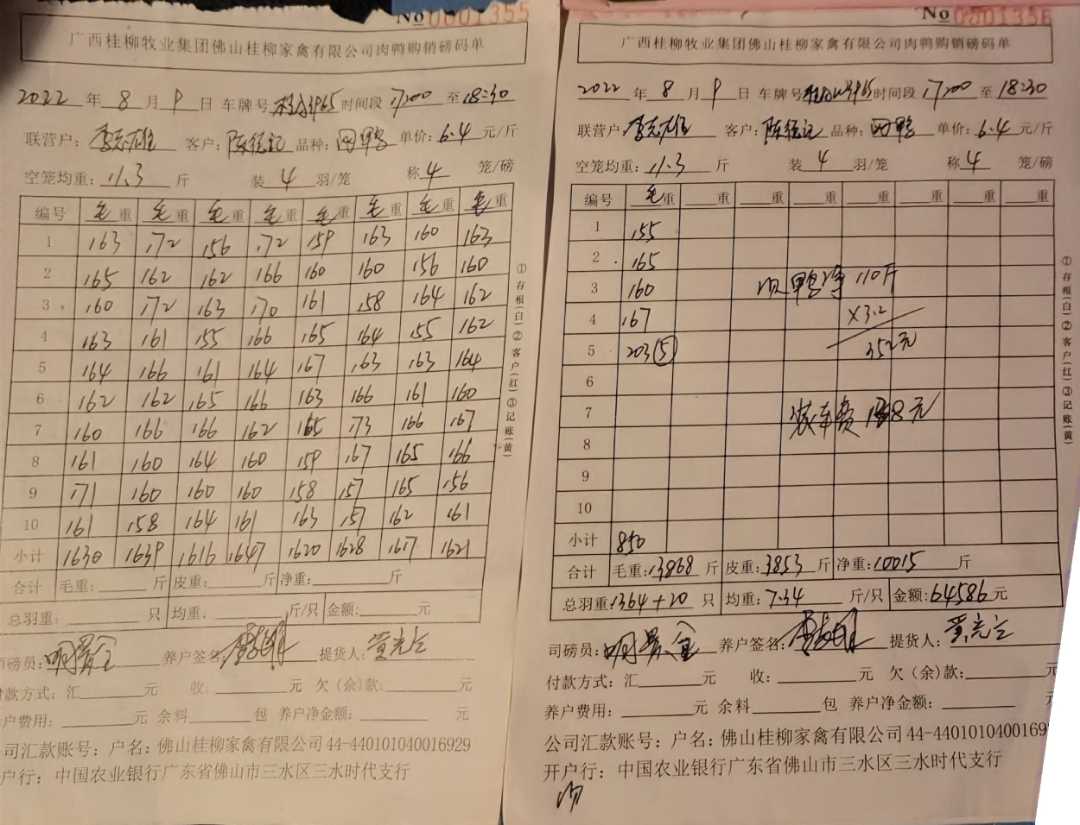 No 0001355
广西桂柳牧业集团佛山桂柳家禽有限公司肉鸭购销磅码单
2022 年 8 月 9 日 车牌号 时间段 17:00 至 18:30
联营户: 李志雄 客户: 陈钰记 品种: 网鸭 单价: 6.4 元/斤
空笼均重: 11.3 斤 装 4 羽/笼 称 4 笼/磅
编号 毛重 毛重 毛重 毛重 毛重 毛重 毛重 毛重
1 163 172 156 172 159 163 160 163
2 165 162 162 166 160 160 156 160
3 160 172 163 170 161 158 164 162
4 163 161 155 166 165 164 155 162
5 164 166 161 164 167 163 163 164
6 162 162 165 166 163 166 161 160
7 160 166 166 162 165 173 166 167
8 161 160 164 160 159 167 165 166
9 171 160 160 160 158 157 165 156
10 161 158 164 161 163 157 162 161
小计 1630 1639 1616 1647 1620 1628 1617 1621
合计 毛重: 斤 皮重: 斤 净重: 斤
总羽重: 只 均重: 斤/只 金额: 元
司磅员: 明景金 养户签名: 提货人: 黄光兰
付款方式: 汇 元 收: 元 欠(余)款: 元
养户费用: 元 余料 包 养户净金额: 元
公司汇款账号: 户名: 佛山桂柳家禽有限公司 44-440101040016929
开户行: 中国农业银行广东省佛山市三水区三水时代支行
①存根(白)②客户(红)③记账(黄)
No 0001356
广西桂柳牧业集团佛山桂柳家禽有限公司肉鸭购销磅码单
2022 年 8 月 9 日 车牌号 时间段 17:00 至 18:30
联营户: 李志雄 客户: 陈钰记 品种: 网鸭 单价: 6.4 元/斤
空笼均重: 11.3 斤 装 4 羽/笼 称 4 笼/磅
编号 毛重 重 重 重 重 重 重 重
1 155
2 165
3 160 次鸭净 110斤
4 167 ×3.2
5 203(5) 352元
6
7 装车费 元
8
9
10
小计 850
合计 毛重: 13868 斤 皮重: 3853 斤 净重: 10015 斤
总羽重: 1364+20 只 均重: 7.34 斤/只 金额: 64586 元
司磅员: 明景金 养户签名: 提货人: 黄光兰
付款方式: 汇 元 收: 元 欠(余)款: 元
养户费用: 元 余料 包 养户净金额: 元
公司汇款账号: 户名: 佛山桂柳家禽有限公司 44-4401010400169
开户行: 中国农业银行广东省佛山市三水区三水时代支行
①存根(白)②客户(红)③记账(黄)